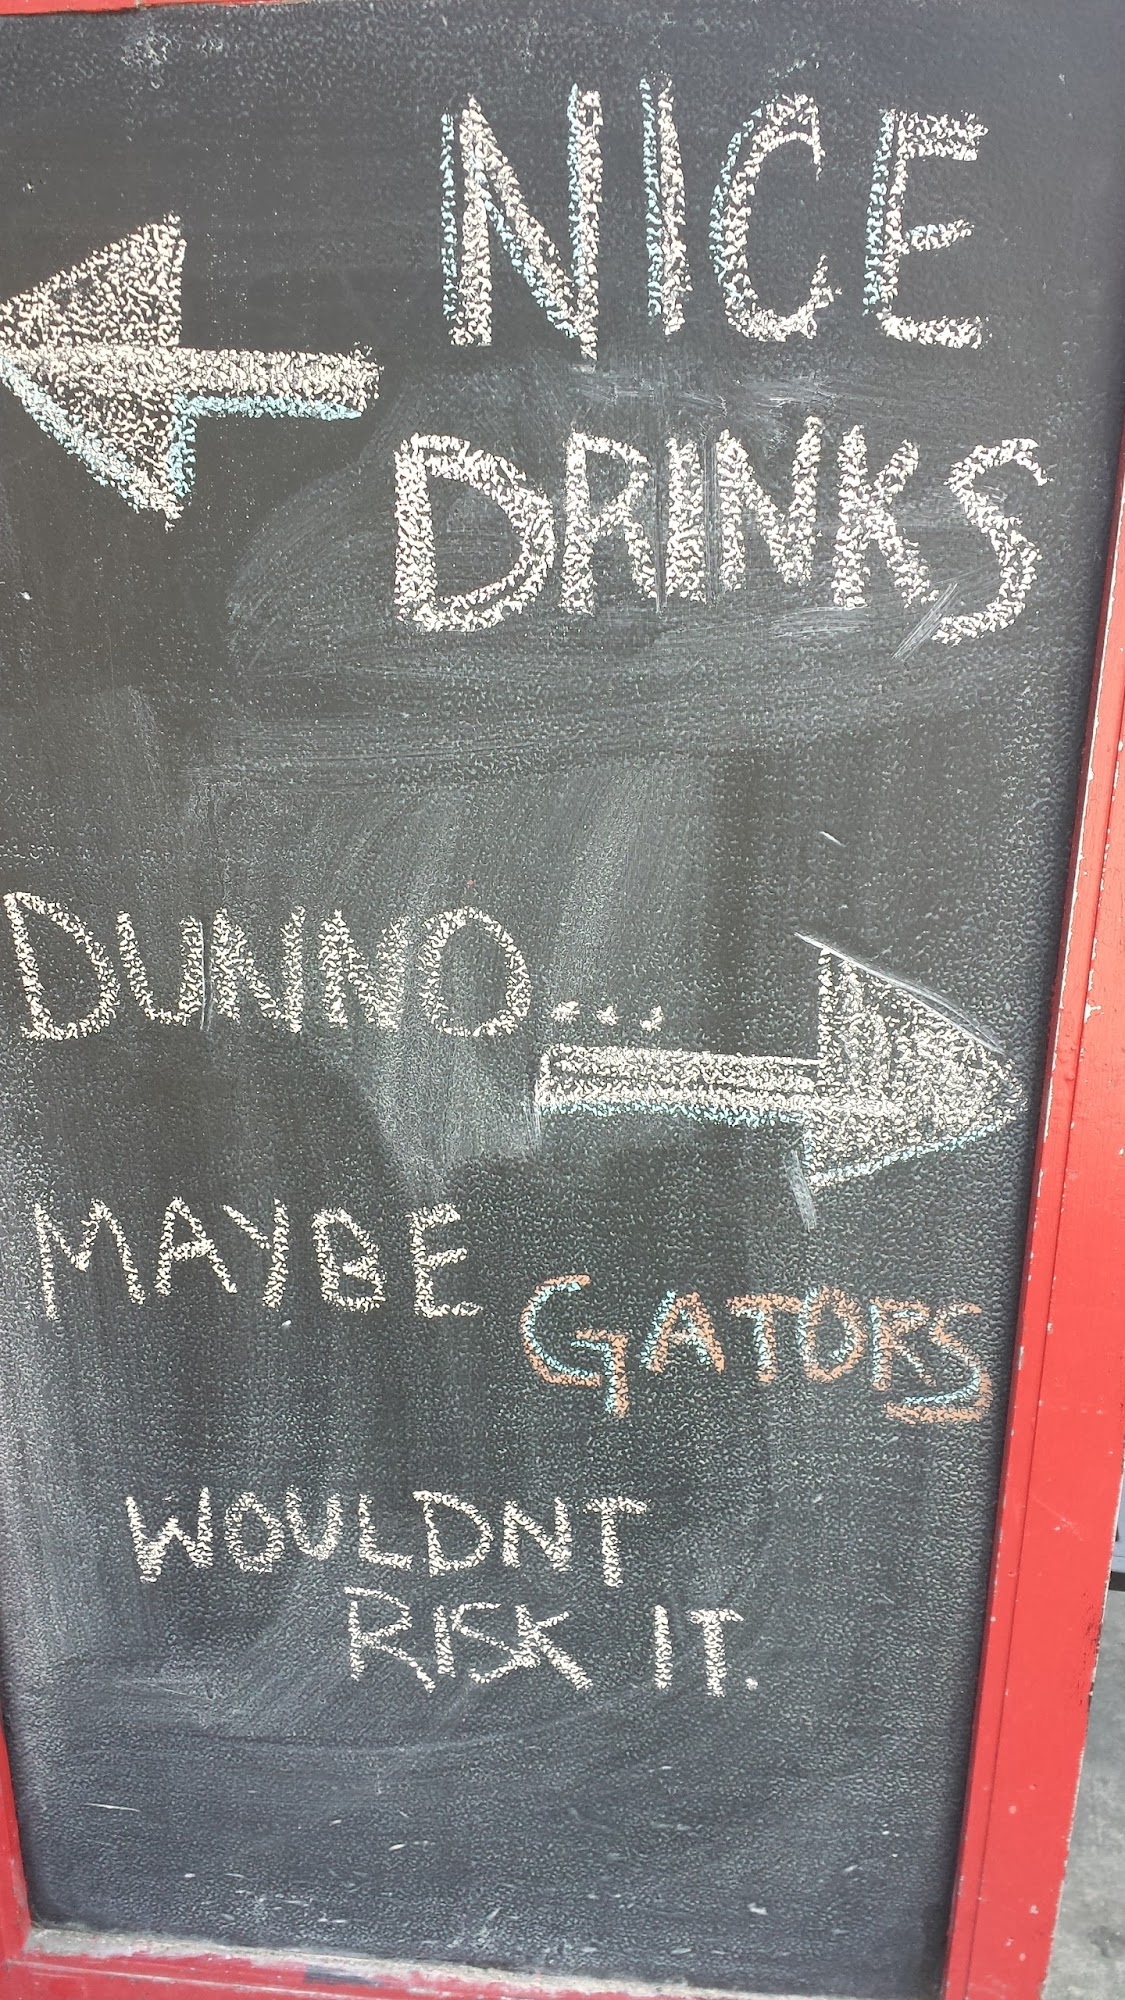 NICE
DRINKS
DUNNO...
MAYBE
GATORS
WOULDNT
RISK IT.